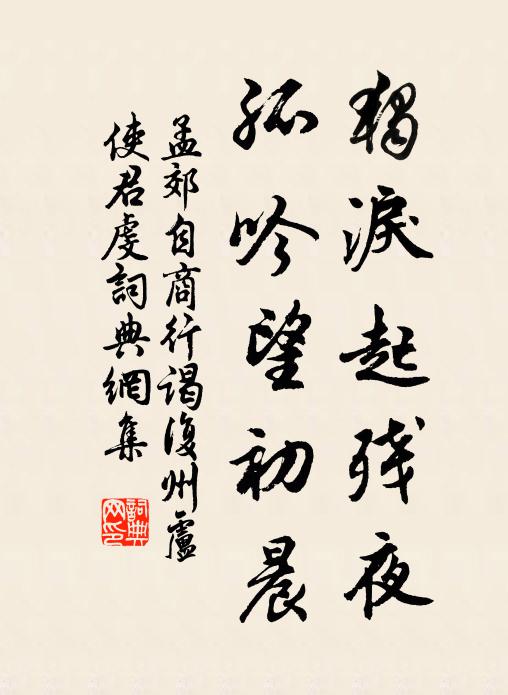 獨淚起殘夜
孤吟望初晨
孟郊自商行謁復州盧
使君虔詞典網集
詞典
网印